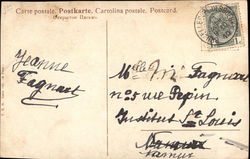 Carte postale. Postkarte. Cartolina postale. Postcard.
Открытое Письмо.
Jeanne
Fagnart
Mlle Fagnart
n° 5 rue Pepin
Institut St Louis
Namur
Namur